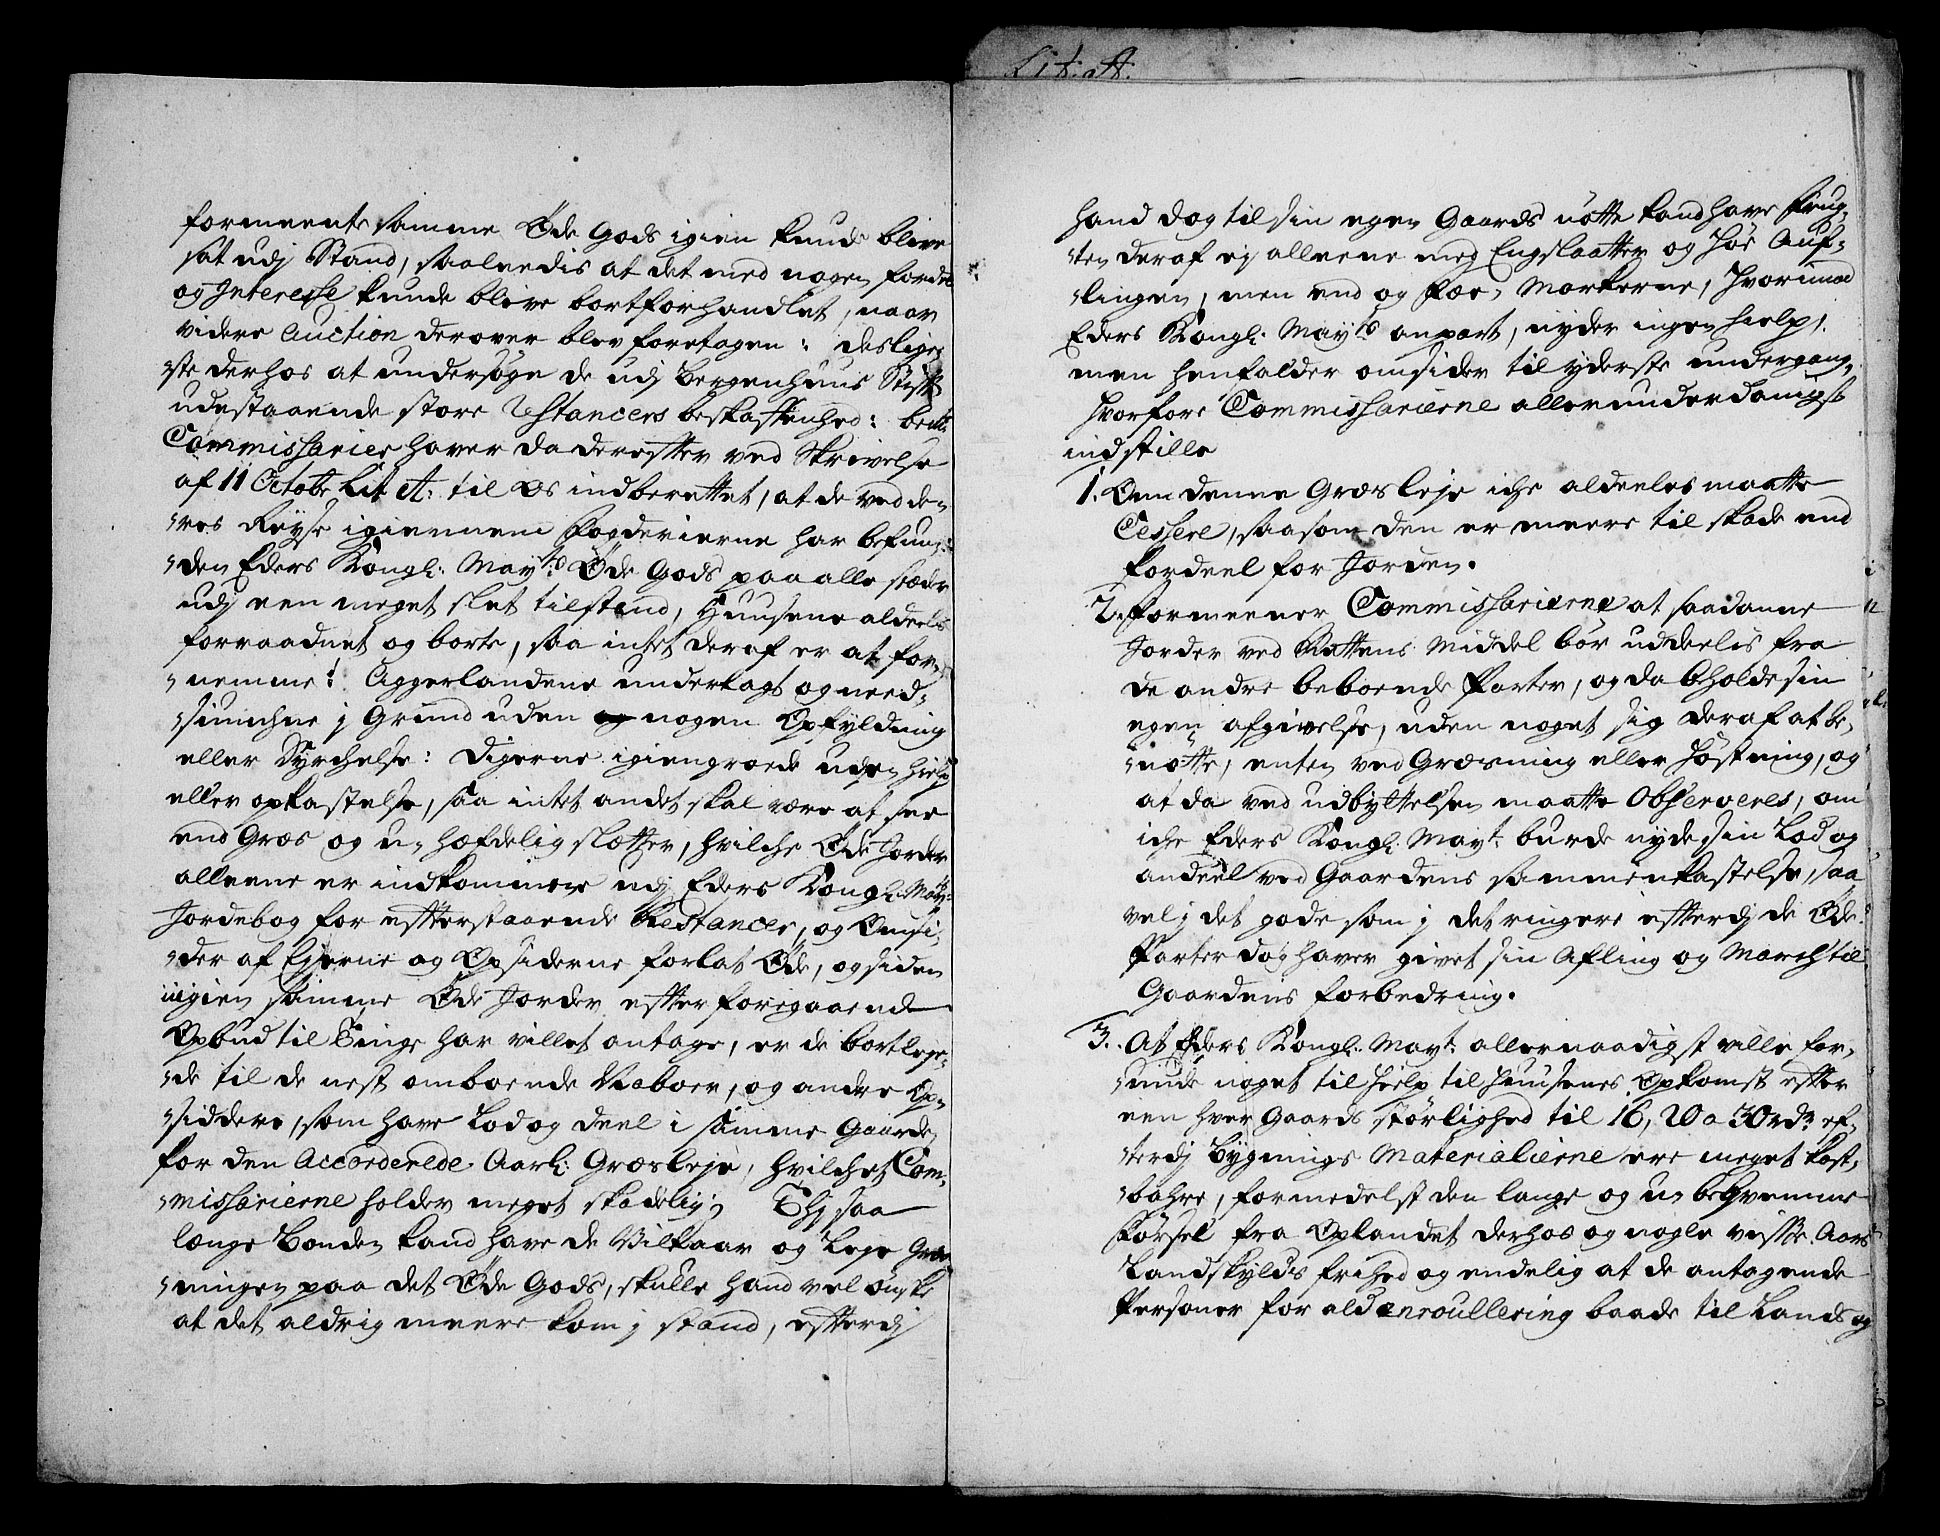 formeente samme Øde Gods igien kunde blive
sat udj Stand, saaleedis at det med nogen fordel
og Interesse kunde blive bortforhandlet, naar
videre Auction derover blev foretagen: desligeste
-ste derhos at undersøge de udj Bergenhuus Stift
udestaaende store Restancers beskaffenhed: bete
Commissarier haver da derefter ved Skrivelse
af 11 Octobr Lit A: til os indberettet, at de ved de-
-res Reyse igiennem Fogderierne har befun-
-den Eders Kongl: Mayts Øde Gods paa alle stæder
udj een meget slet tilstand, Huusene aldeelis
forraadnet og borte, saa intet deraf er at for-
-nemme: Aggerlandene underlagt og need-
-siunchne j Grund uden nogen Opfyldning
eller Dyrchelse: Digerne igiengroede uden hielp
eller opkastelse, saa intet andet skal være at see
end Græs og u-hæfdelig slætter, hvilche Øde Jorder
alleene er indkommen udj Eders Kongl: Mayts
Jordebog for efterstaaende Restancer, og Omsi-
-der af Ejerne og Opsiderne forlat Øde, og siden
ingien samme Øde Jorder efter foregaaende
Opbud til Tinge har villet antage, er de bortleje-
-de til de nest omboende Naboer, og andre Op-
-siddere, som have Lod og deel i samme Gaarde,
for den Accorderede Aarl: Græsleje, hvilchet Com-
-missarierne holder meget skadelig; Thj saa
længe Bonden kand have de Vilkaar og Leje Græs-
-ningen paa det Øde Gods, skulle hand vel ønske
at det aldrig meere kom j stand, efterdj
Lit: A:
hand dog til sin egen Gaards nøtte kand have Frug-
-ten deraf ej alleene med Engslaatter og Høe Auf-
-lingen, men end og Fæe-Markerne, hvorimod
Eders Kongl: Mayts anpart, nyder ingen hielp,
men henfalder omsider til yderste undergang,
hvorfore Commissarierne allerunderdanigst
indstille
1. Om denne Græsleje iche aldeeles maatte
Cessere, saasom den er meere til skade end
fordeel for Jorden.
2. Formeener Commissarierne at saadanne
Jorder ved Rettens Middel bør uddeelis fra
de andre beboende Parter, og da beholde sin
egen afgivelse, uden noget sig deraf at be-
-nøtte, enten ved Græsning eller Høstning, og
at da ved udbyttelsen maatte Observeres, om
iche Eders Kongl: Mayt: burde nyde sin Lod og
andeel ved Gaardens sammenkastelse, saa
vel j det gode som j det ringere efterdj de Øde
Parter dog haver givet sin Afling og March til
Gaardens forbedring.
3. At Eders Kongl: Mayt: allernaadigst ville for-
-unde noget til hielp til Huusenes Opkomst efter
een hver Gaards størlighed til 16, 20 a 30 rdr ef-
-terdj Bygnings Materialierne ere meget kost-
-bahre, formedelst den lange og u-beqvemme
Førsel fra Oplandet derhos og nogle visse Aars
Landskylds frihed og endelig at de antagende
Personer for ald enroullering baade til Lands og